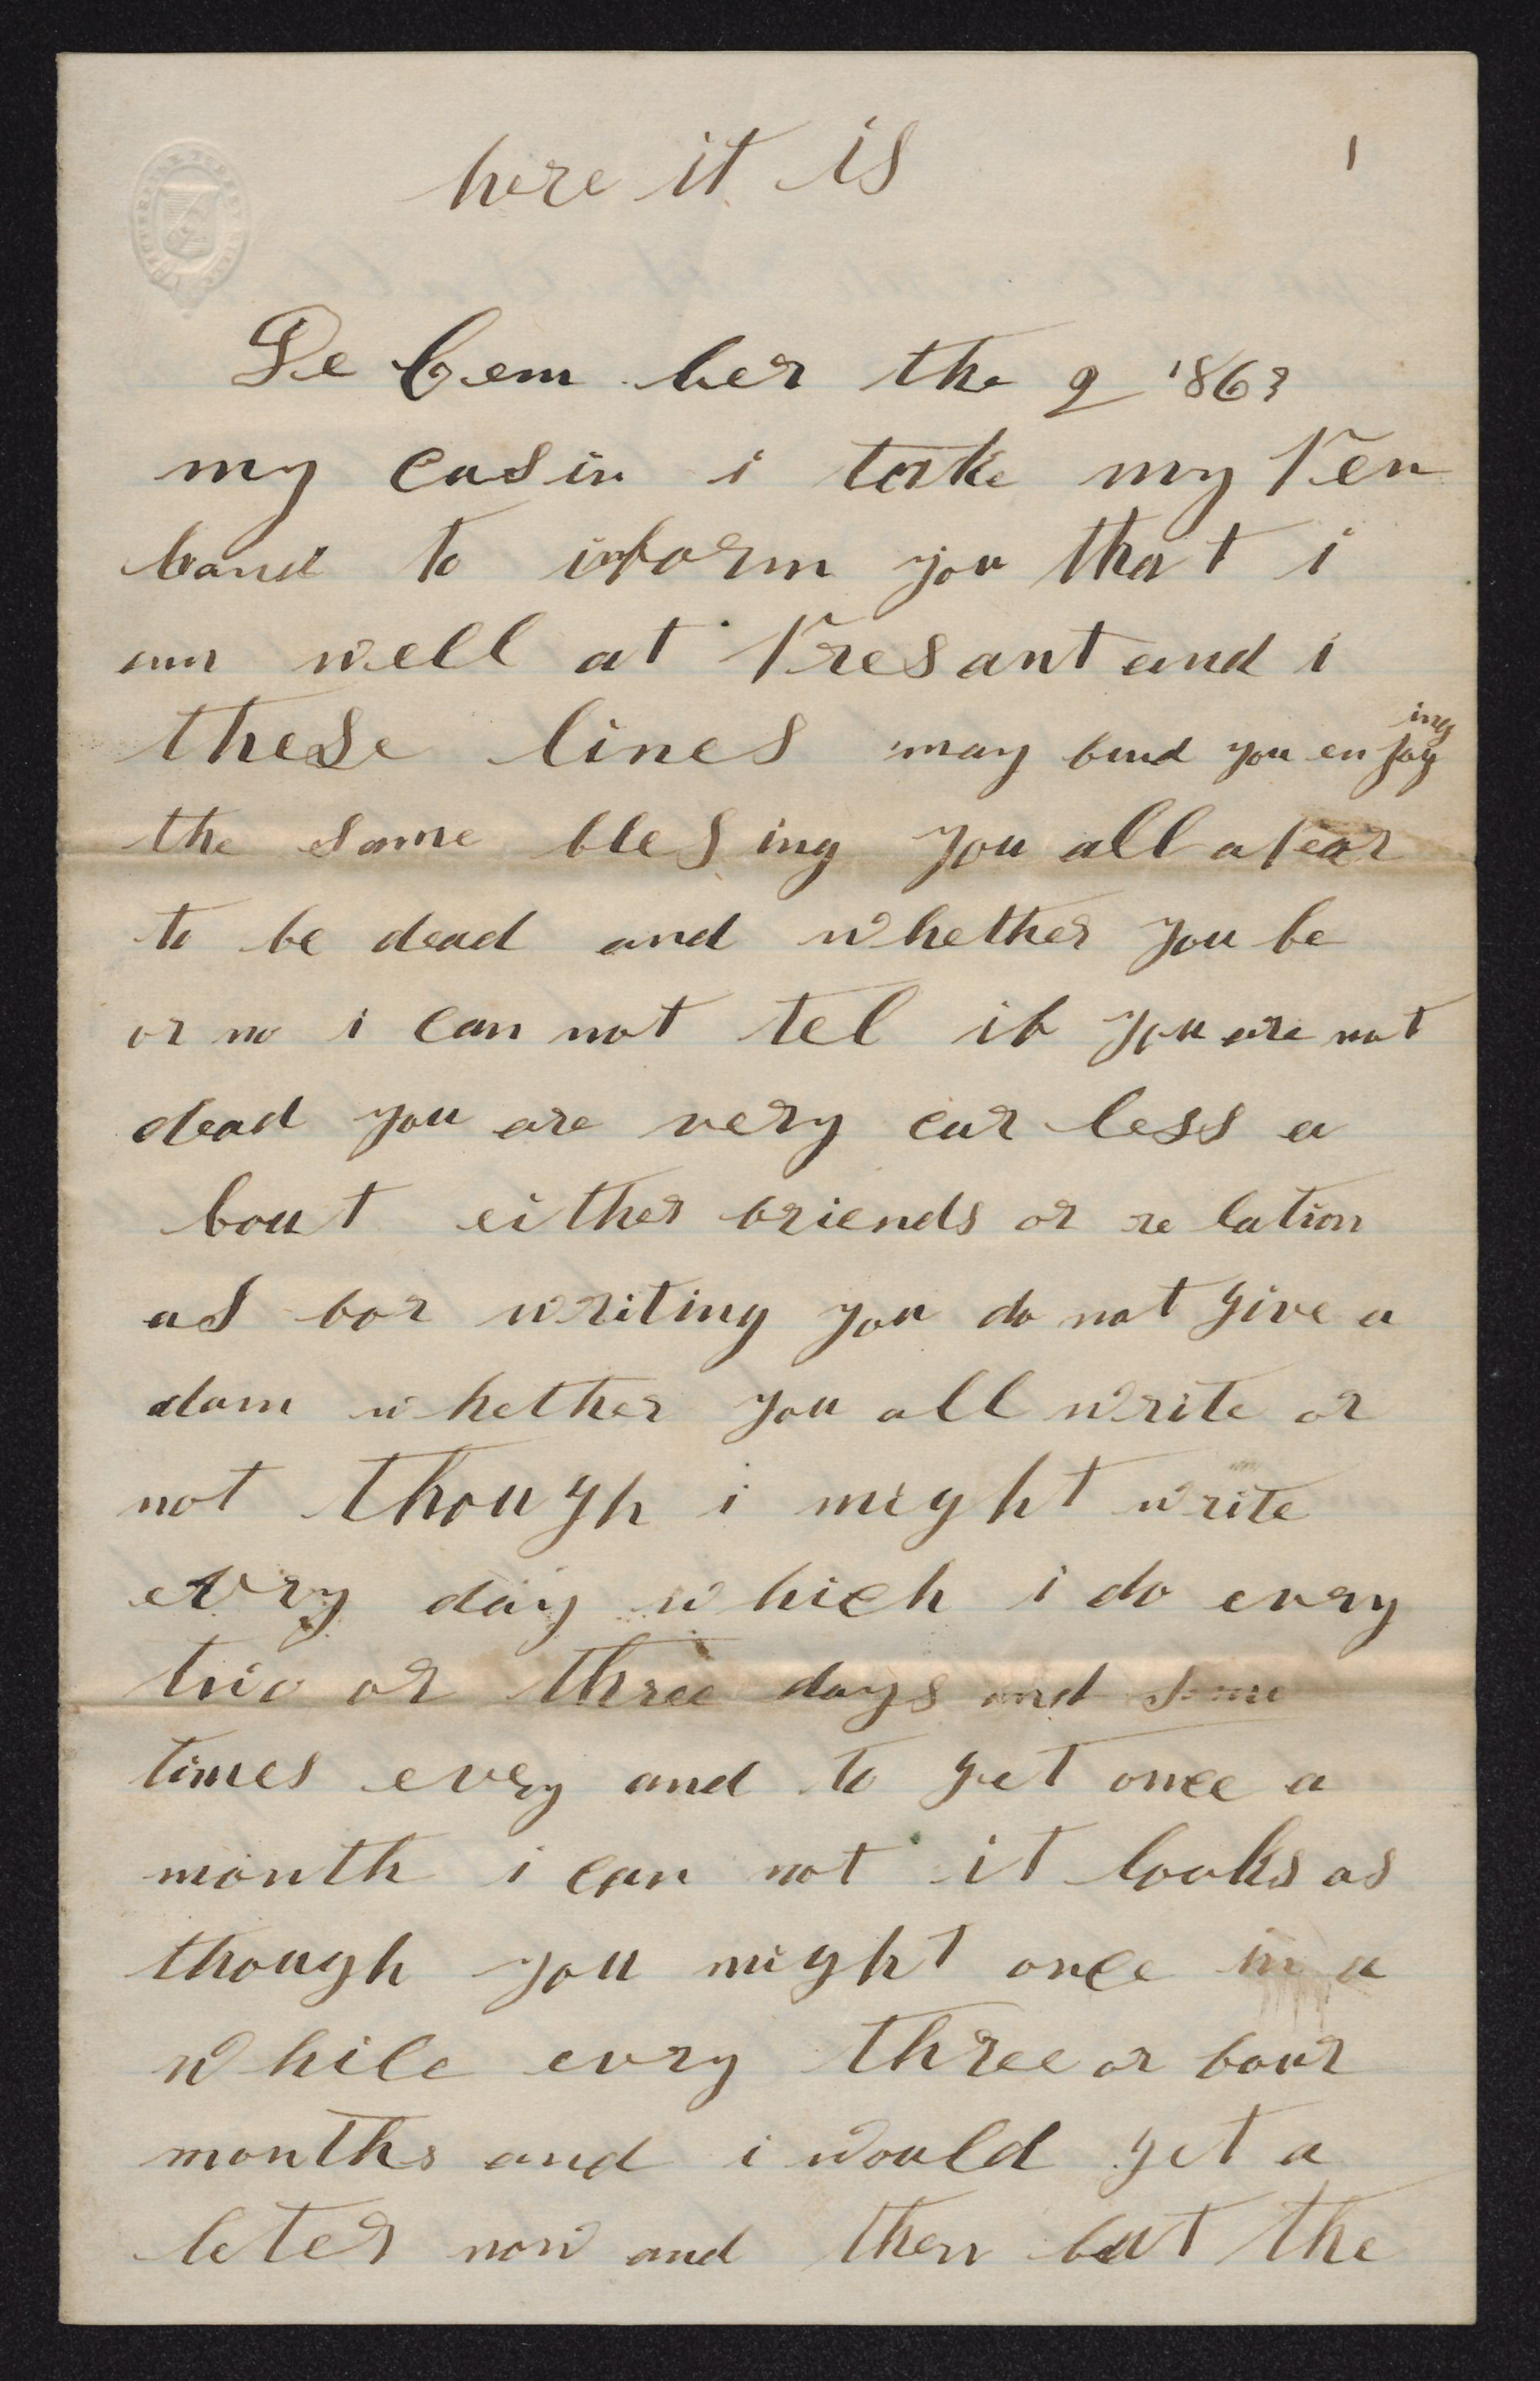 here it is
1
De Cem ber the 9 1863
my casin i take my Pen
band to inform you that i
am well at Presant and i
these lines may bind you en joy ing
the same bles ing you all apear
to be dead and whether you be
or no i can not tel if you are not
dead you are very car less a
bout either friends or re lation
as for writing you do not give a
dam whether you all write or
not though i might write
evry day which i do evry
two or three days and some
times every and to get once a
month i can not it looks as
though you might once in a
while evry three or four
months and i would get a
leter now and then but the